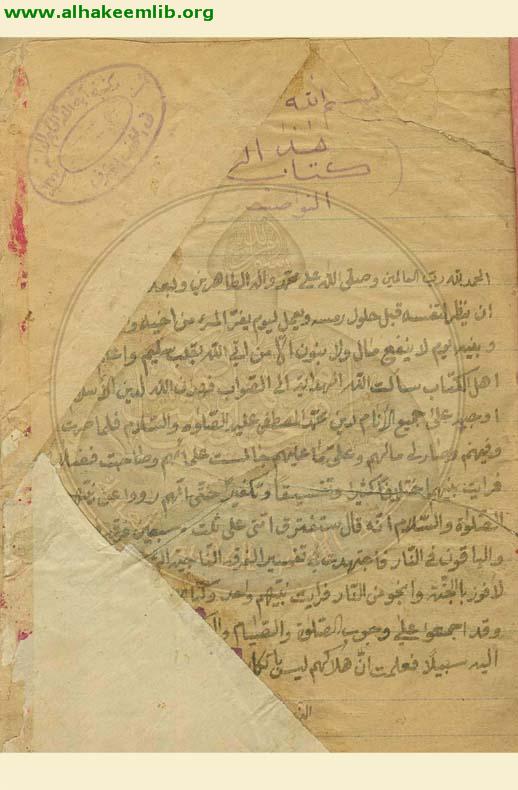 www.alhakeemlib.org
بسم الله
هذا
كتاب
الحمد لله رب العالمين وصلى الله على محمد واله الطاهرين وبعد
ان ينظر لنفسه قبل حلول رمسه ويعمل ليوم يفر المرء من اخيه و
وبنيه يوم لا ينفع مال ولا بنون الا من اتى الله بقلب سليم
اهل الكتاب سالت الله الهداية الى الصواب لدين الاسلا
على جميع الانام لدين محمد المصطفى عليه الصلوة والسلام فلما صرت
وفيهم وصار لي مالهم وعلي ما عليهم جالست علمائهم
فرايت بينهم اختلافا كثيرا وتفسيقا وتكفيرا حتى انهم رووا عن
الصلوة والسلام انه قال ستفترق امتي على ثلث وسبعين فرقة
والباقون في النار فاجتهدت في تفسير الفرقة الناجية
لافوز بالجنة وانجو من النار فرايت نبيهم واحد وكتابهم
وقد اجمعوا على وجوب الصلوة والصيام
اليه سبيلا فعلمت ان هلاكهم ليس